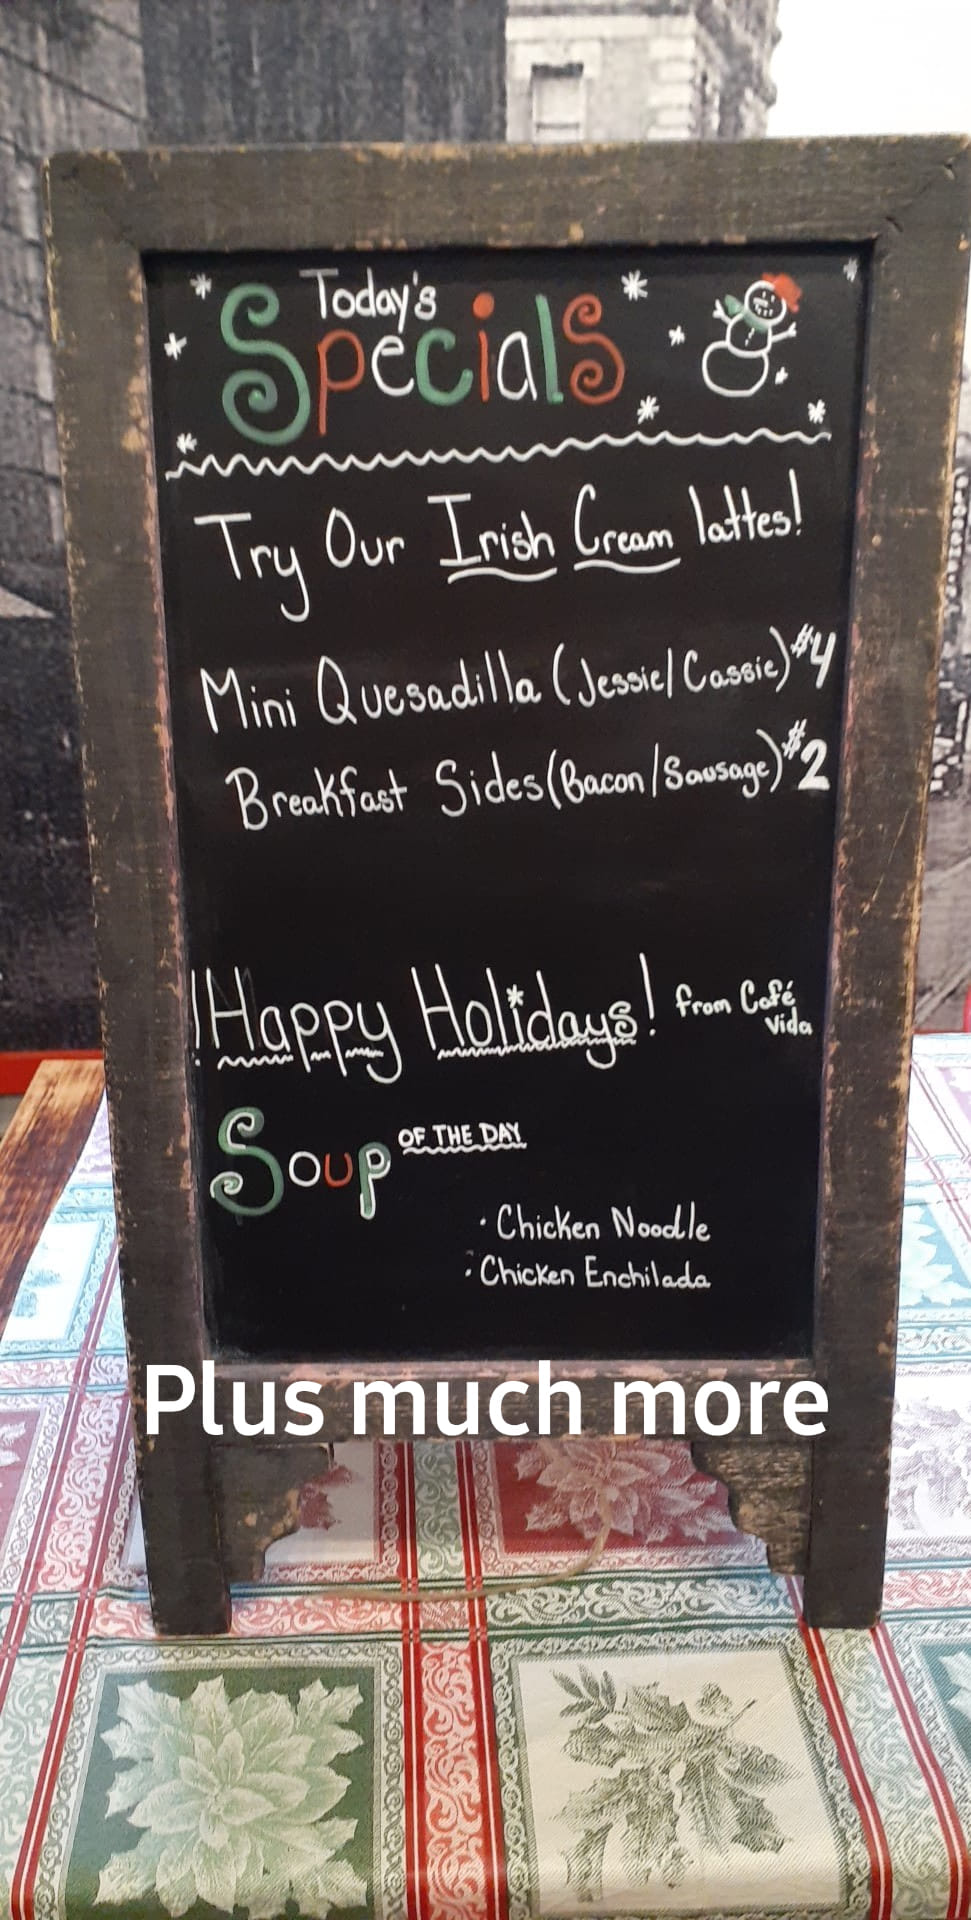 Today's
Specials
Try Our Irish Cream lattes!
Mini Quesadilla (Jessie/Cassie) $4
Breakfast Sides (Bacon/Sausage) $2
!Happy Holidays! from Café
Vida
Soup OF THE DAY
· Chicken Noodle
· Chicken Enchilada
Plus much more